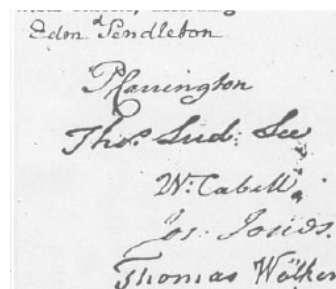 Edmd Pendleton
P Carrington
Thos. Lud: Lee
W: Cabell
Jos. Jones.
Thomas Walker